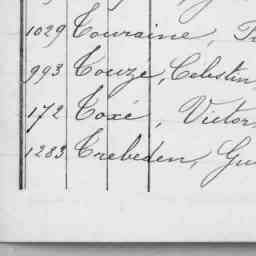 1029 Touraine,
993 Touzé, Célestin,
172 Toxé, Victor
1283 Trebeden, Gu